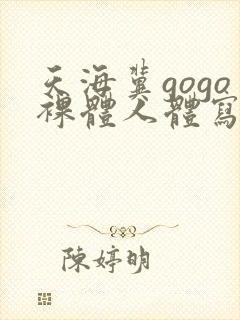 天海翼gogo
裸體人體寫
陳婷明